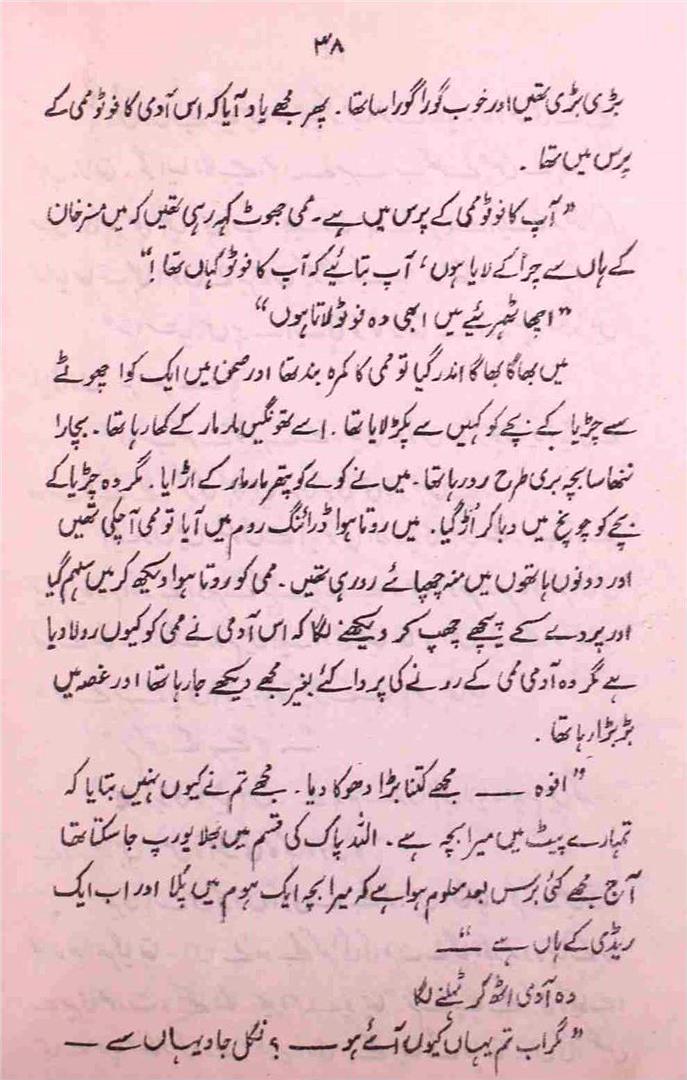 ۳۸
بڑی بڑی تھیں اور خوب گورا گورا سا تھا ۔ پھر مجھے یاد آیا کہ اس آدمی کا فوٹو ممی کے
پرس میں تھا ۔
”آپ کا فوٹو ممی کے پرس میں ہے ۔ ممی جھوٹ کہہ رہی تھیں کہ میں مسز خان
کے ہاں سے چرا کے لایا ہوں‘ آپ بتائیے کہ آپ کا فوٹو کہاں تھا !“
”اچھا ٹھہرئیے میں ابھی وہ فوٹو لاتا ہوں“
میں بھاگا بھاگا اندر گیا تو ممی کا کمرہ بند تھا اور صحن میں ایک کوا چھوٹے
سے چڑیا کے بچے کو کہیں سے پکڑ لایا تھا ۔ اسے ٹھونگیں مار مار کے کھا رہا تھا ۔ بچارا
ننھا سا بچہ بری طرح رو رہا تھا ۔ میں نے کوے کو پتھر مار مار کے اڑایا ۔ مگر وہ چڑیا کے
بچے کو چونچ میں دبا کر اُڑ گیا ۔ میں روتا ہوا ڈرائنگ روم میں آیا تو ممی آ چکی تھیں
اور دونوں ہاتھوں میں منہ چھپائے رو رہی تھیں ۔ ممی کو روتا ہوا دیکھ کر میں سہم گیا
اور پردے کے پیچھے چھپ کر دیکھنے لگا کہ اس آدمی نے ممی کو کیوں رولا دیا
ہے مگر وہ آدمی ممی کے رونے کی پروا کئے بغیر مجھے دیکھے جا رہا تھا اور غصہ میں
بڑبڑا رہا تھا ۔
”افوہ — مجھے کتنا بڑا دھوکا دیا ۔ مجھے تم نے کیوں نہیں بتایا کہ
تمہارے پیٹ میں میرا بچہ ہے ۔ اللہ پاک کی قسم میں بھلا یورپ جا سکتا تھا
آج مجھے کئی برس بعد معلوم ہوا ہے کہ میرا بچہ ایک ہوم میں پلا اور اب ایک
ریڈی کے ہاں ہے —“
وہ آدمی اٹھ کر ٹہلنے لگا
”مگر اب تم یہاں کیوں آئے ہو — ؟ نکل جاو یہاں سے —